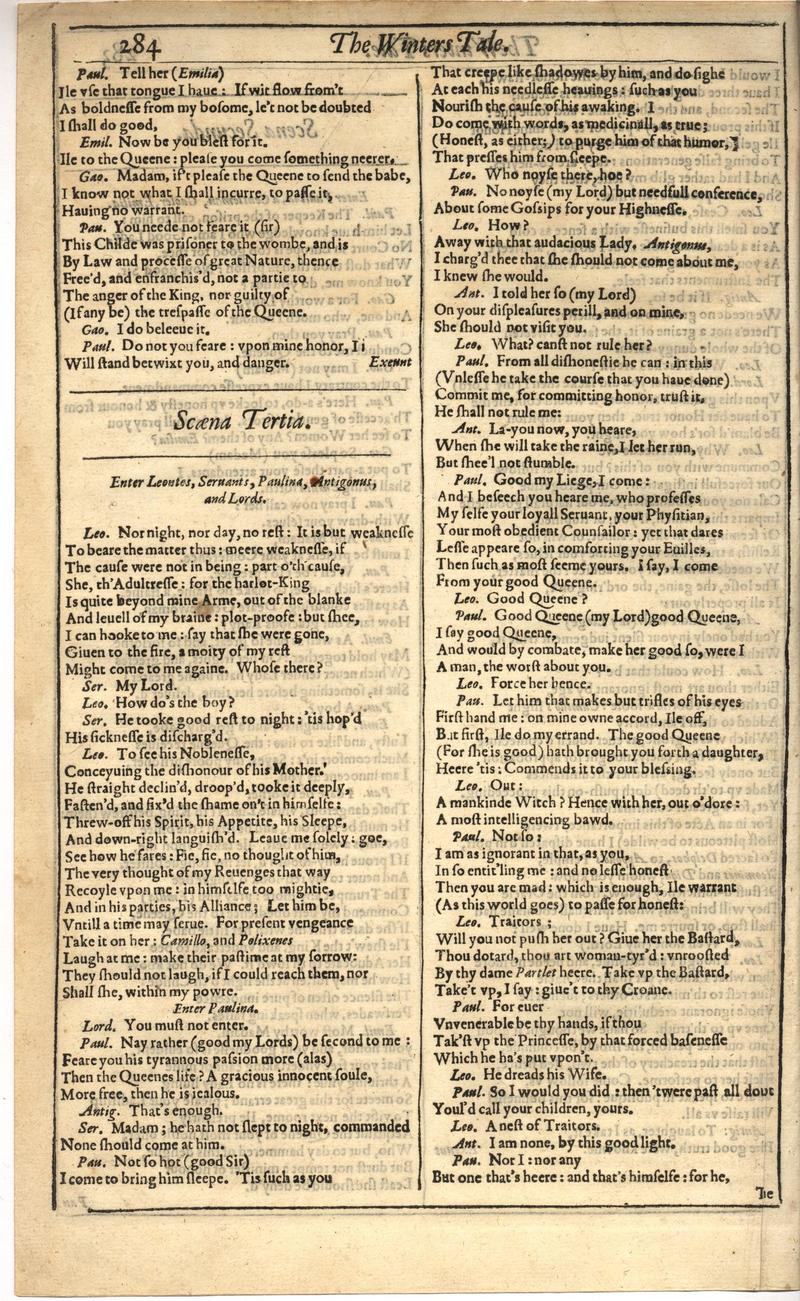 284
The Winters Tale.
Paul. Tell her (Emilia)
Ile vse that tongue I haue: If wit flow from't
As boldnesse from my bosome, le't not be doubted
I shall do good,
Emil. Now be you blest for it.
Ile to the Queene: please you come something neerer.
Gao. Madam, if't please the Queene to send the babe,
I know not what I shall incurre, to passe it,
Hauing no warrant.
Pau. You neede not feare it (sir)
This Childe was prisoner to the wombe, and is
By Law and processe of great Nature, thence
Free'd, and enfranchis'd, not a partie to
The anger of the King, nor guilty of
(If any be) the trespasse of the Queene.
Gao. I do beleeue it.
Paul. Do not you feare: vpon mine honor, I
Will stand betwixt you, and danger. Exeunt
Scæna Tertia.
Enter Leontes, Seruants, Paulina, Antigonus,
and Lords.
Leo. Nor night, nor day, no rest: It is but weaknesse
To beare the matter thus: meere weaknesse, if
The cause were not in being: part o'th cause,
She, th'Adultresse: for the harlot-King
Is quite beyond mine Arme, out of the blanke
And leuell of my braine: plot-proofe: but shee,
I can hooke to me: say that she were gone,
Giuen to the fire, a moity of my rest
Might come to me againe. Whose there?
Ser. My Lord.
Leo. How do's the boy?
Ser. He tooke good rest to night: 'tis hop'd
His sicknesse is discharg'd.
Leo. To see his Noblenesse,
Conceyuing the dishonour of his Mother.
He straight declin'd, droop'd, tooke it deeply,
Fasten'd, and fix'd the shame on't in himselfe:
Threw-off his Spirit, his Appetite, his Sleepe,
And down-right languish'd. Leaue me solely: goe,
See how he fares: Fie, fie, no thought of him,
The very thought of my Reuenges that way
Recoyle vpon me: in himselfe too mightie,
And in his parties, his Alliance; Let him be,
Vntill a time may serue. For present vengeance
Take it on her: Camillo, and Polixenes
Laugh at me: make their pastime at my sorrow:
They should not laugh, if I could reach them, nor
Shall she, within my powre.
Enter Paulina.
Lord. You must not enter.
Paul. Nay rather (good my Lords) be second to me:
Feare you his tyrannous passion more (alas)
Then the Queenes life? A gracious innocent soule,
More free, then he is iealous.
Antig. That's enough.
Ser. Madam; he hath not slept to night, commanded
None should come at him.
Pau. Not so hot (good Sir)
I come to bring him sleepe. 'Tis such as you
That creepe like shadowes by him, and do sighe
At each his needlesse heauings: such as you
Nourish the cause of his awaking. I
Do come with words, as medicinall, as true;
(Honest, as either;) to purge him of that humor,
That presses him from sleepe.
Leo. Who noyse there, hoe?
Pau. No noyse (my Lord) but needfull conference,
About some Gossips for your Highnesse.
Leo. How?
Away with that audacious Lady. Antigonus,
I charg'd thee that she should not come about me,
I knew she would.
Ant. I told her so (my Lord)
On your displeasures perill, and on mine,
She should not visit you.
Leo. What? canst not rule her?
Paul. From all dishonestie he can: in this
(Vnlesse he take the course that you haue done)
Commit me, for committing honor, trust it,
He shall not rule me:
Ant. La-you now, you heare,
When she will take the raine, I let her run,
But shee'l not stumble.
Paul. Good my Liege, I come:
And I beseech you heare me, who professes
My selfe your loyall Seruant, your Physitian,
Your most obedient Counsailor: yet that dares
Lesse appeare so, in comforting your Euilles,
Then such as most seeme yours. I say, I come
From your good Queene.
Leo. Good Queene?
Paul. Good Queene (my Lord) good Queene,
I say good Queene,
And would by combate, make her good so, were I
A man, the worst about you.
Leo. Force her hence.
Pau. Let him that makes but trifles of his eyes
First hand me: on mine owne accord, Ile off,
But first, Ile do my errand. The good Queene
(For she is good) hath brought you forth a daughter,
Heere 'tis: Commends it to your blessing.
Leo. Out:
A mankinde Witch? Hence with her, out o'dore:
A most intelligencing bawd.
Paul. Not so:
I am as ignorant in that, as you,
In so entit'ling me: and no lesse honest
Then you are mad: which is enough, Ile warrant
(As this world goes) to passe for honest:
Leo. Traitors;
Will you not push her out? Giue her the Bastard,
Thou dotard, thou art woman-tyr'd: vnroosted
By thy dame Partlet heere. Take vp the Bastard,
Take't vp, I say: giue't to thy Croane.
Paul. For euer
Vnvenerable be thy hands, if thou
Tak'st vp the Princesse, by that forced basenesse
Which he ha's put vpon't.
Leo. He dreads his Wife.
Paul. So I would you did: then 'twere past all dout
Youl'd call your children, yours.
Leo. A nest of Traitors.
Ant. I am none, by this good light.
Pau. Nor I: nor any
But one that's heere: and that's himselfe: for he,